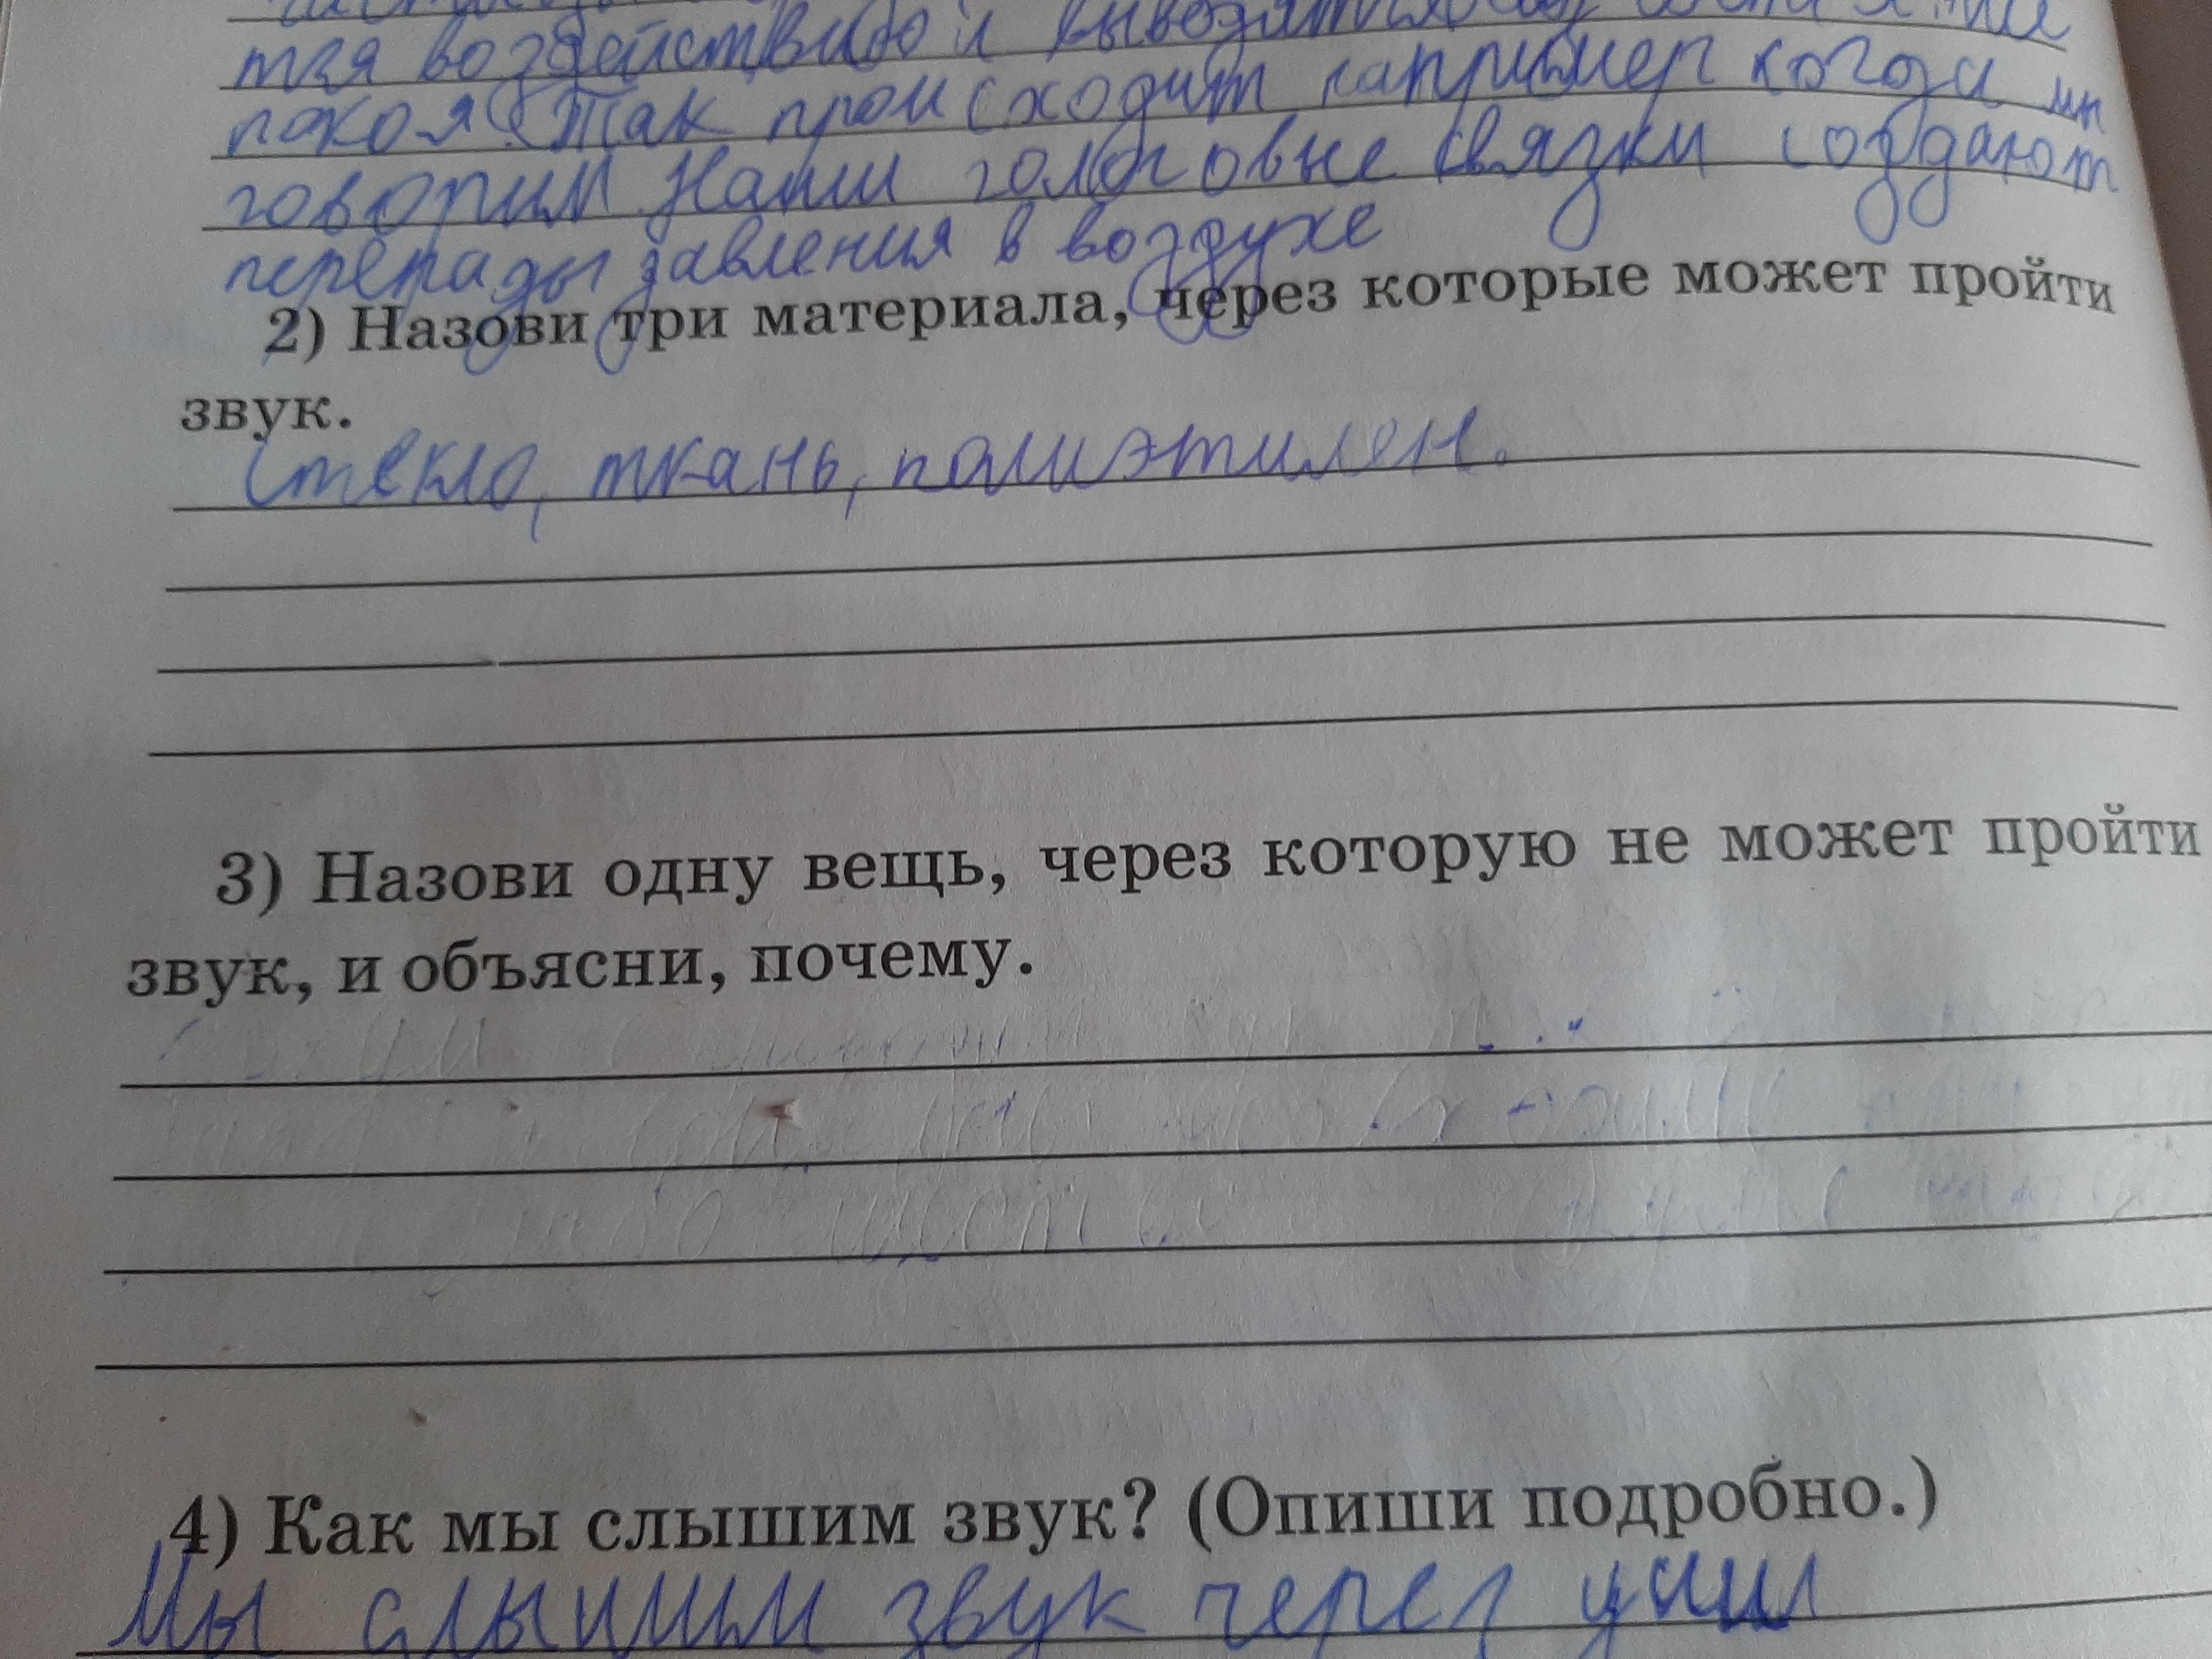 тся воздействию и выводятся
покоя. Так происходит например когда мы
говорим. Наши голосовые связки создают
перепады давления в воздухе
2) Назови три материала, через которые может пройти
звук.
Стекло, ткань, полиэтилен.
3) Назови одну вещь, через которую не может пройти
звук, и объясни, почему.
4) Как мы слышим звук? (Опиши подробно.)
Мы слышим звук через уши